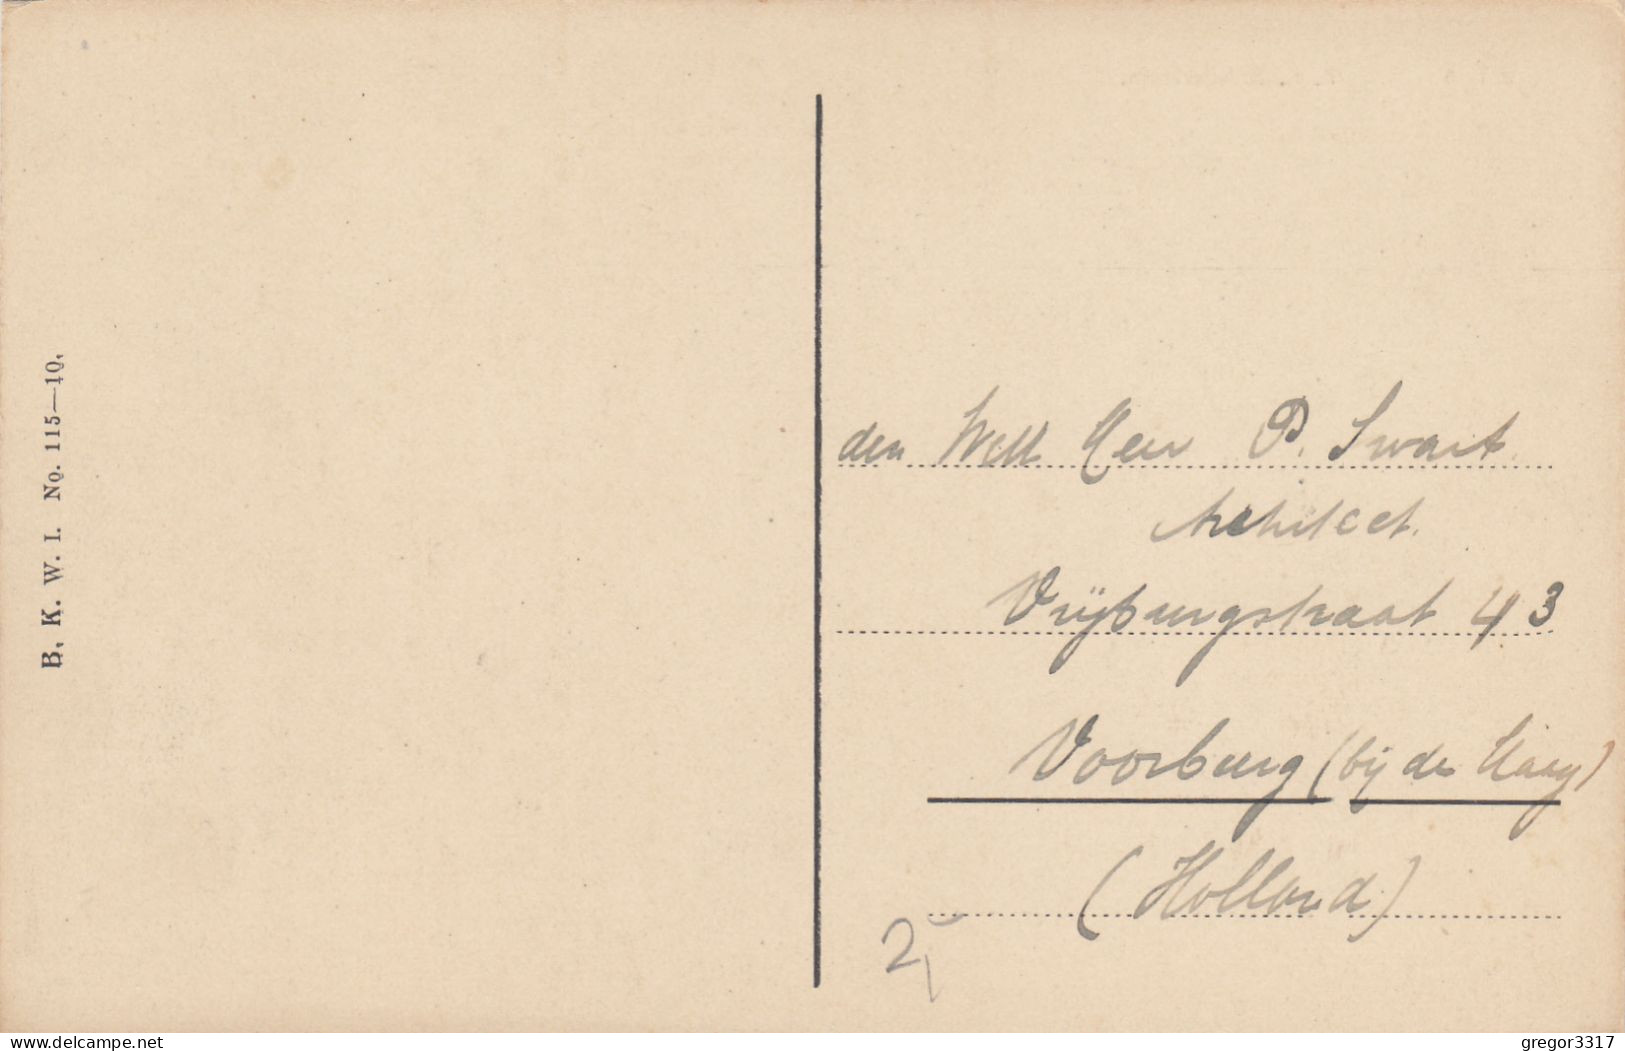 B. K. W. I. No. 115—10.
den Well Heer P. Swart
Architect.
Vrijburgstraat 43
Voorburg (bij den Haag)
(Holland)
2,-
www.delcampe.net
gregor3317